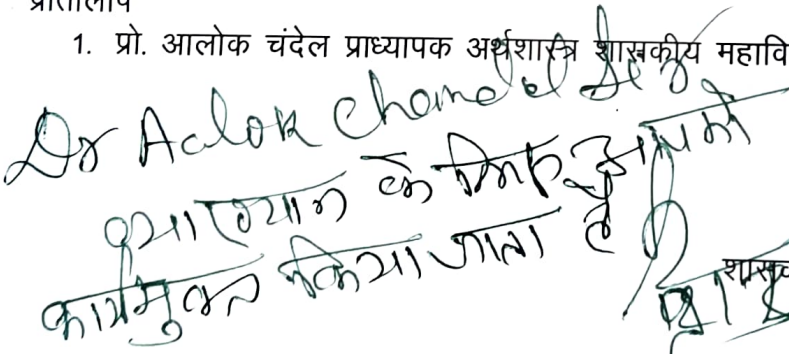 प्रतिलिपि
1. प्रो. आलोक चंदेल प्राध्यापक अर्थशास्त्र शासकीय महावि
Dr Aalok Chandel Sir
व्याख्यान के लिए आपको
कार्यमुक्त किया जाता है